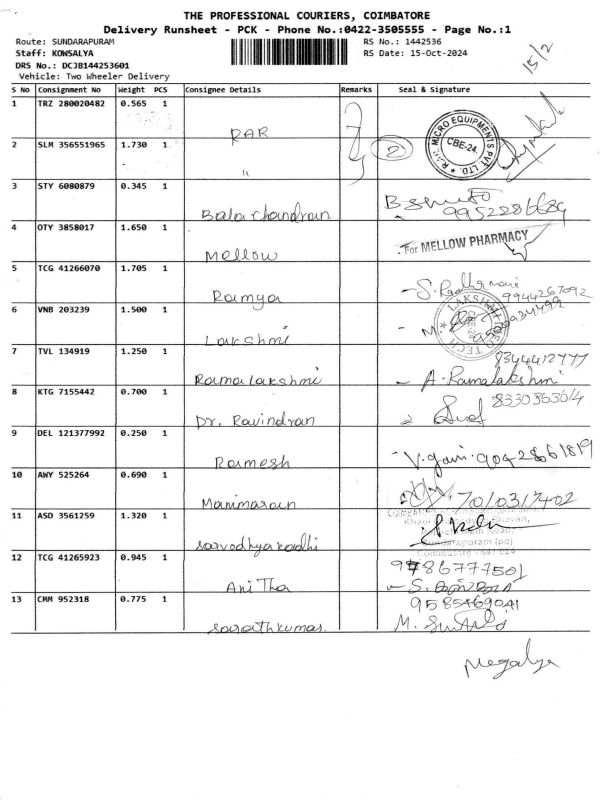 THE PROFESSIONAL COURIERS, COIMBATORE
Delivery Runsheet - PCK - Phone No.:0422-3505555 - Page No.:1
Route: SUNDARAPURAM RS No.: 1442536
Staff: KOWSALYA RS Date: 15-Oct-2024
DRS No.: DCJB144253601
Vehicle: Two Wheeler Delivery
15/2
S No Consignment No Weight PCS Consignee Details Remarks Seal & Signature
1 TRZ 280020482 0.565 1 RAR
2 SLM 356551965 1.730 1 " 2 R.A.R. MICRO EQUIPMENTS PVT. LTD. CBE-24.
3 STY 6080879 0.345 1 Bala chandran
4 OTY 3858017 1.650 1 Mellow For MELLOW PHARMACY
5 TCG 41266070 1.705 1 Ramya 9944267092
6 VNB 203239 1.500 1 Lakshmi
7 TVL 134919 1.250 1 Ramalakshmi 8344412777 A. Ramalakshmi
8 KTG 7155442 0.700 1 Dr. Ravindran
9 DEL 121377992 0.250 1 Ramesh
10 AWY 525264 0.690 1 Manimaran
11 ASD 3561259 1.320 1 Sarvodhyakadhi
12 TCG 41265923 0.945 1 Anitha
13 CMM 952318 0.775 1 Sarathkumar 9585469041
Megalya